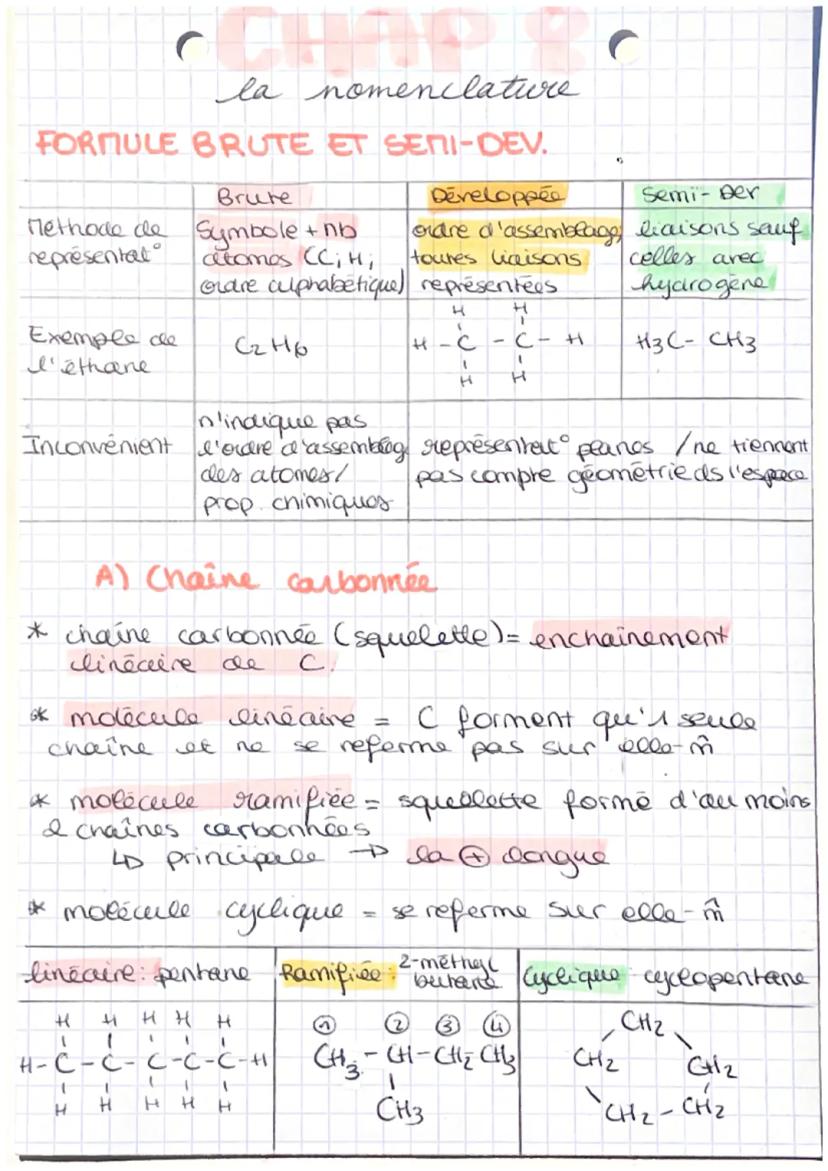 CHAP 8
la nomenclature
FORMULE BRUTE ET SEMI-DEV.
Brute
Développée
Semi-Der
Méthode de représentat°
Symbole + nb
atomes (C; H;
ordre alphabétique)
ordre d'assemblage,
toutes liaisons
représentées
liaisons sauf
celles avec
hydrogène
Exemple de
l'éthane
C2H6
H H
H - C - C - H
H H
H3C - CH3
Inconvénient
n'indique pas
l'ordre d'assemblag
des atomes/
prop. chimiques
représentat° planes / ne tiennent
pas compte géométrie ds l'espace
A) Chaîne carbonnée
* chaîne carbonnée (squelette) = enchaînement
linéaire de C.
* molécule linéaire = C forment qu'1 seule
chaîne et ne se referme pas sur elle-m̂
* molécule ramifiée = squellette formé d'au moins
2 chaînes carbonnées
↳ principale → la ⊕ longue
* molécule cyclique = se referme sur elle-m̂
linéaire : pentane
Ramifiée : 2-méthyl
butane
Cyclique cyclopentane
H H H H H
H - C - C - C - C - C - H
H H H H H
① ② ③ ④
CH3 - CH - CH2 CH3
CH3
CH2
CH2 CH2
CH2 - CH2